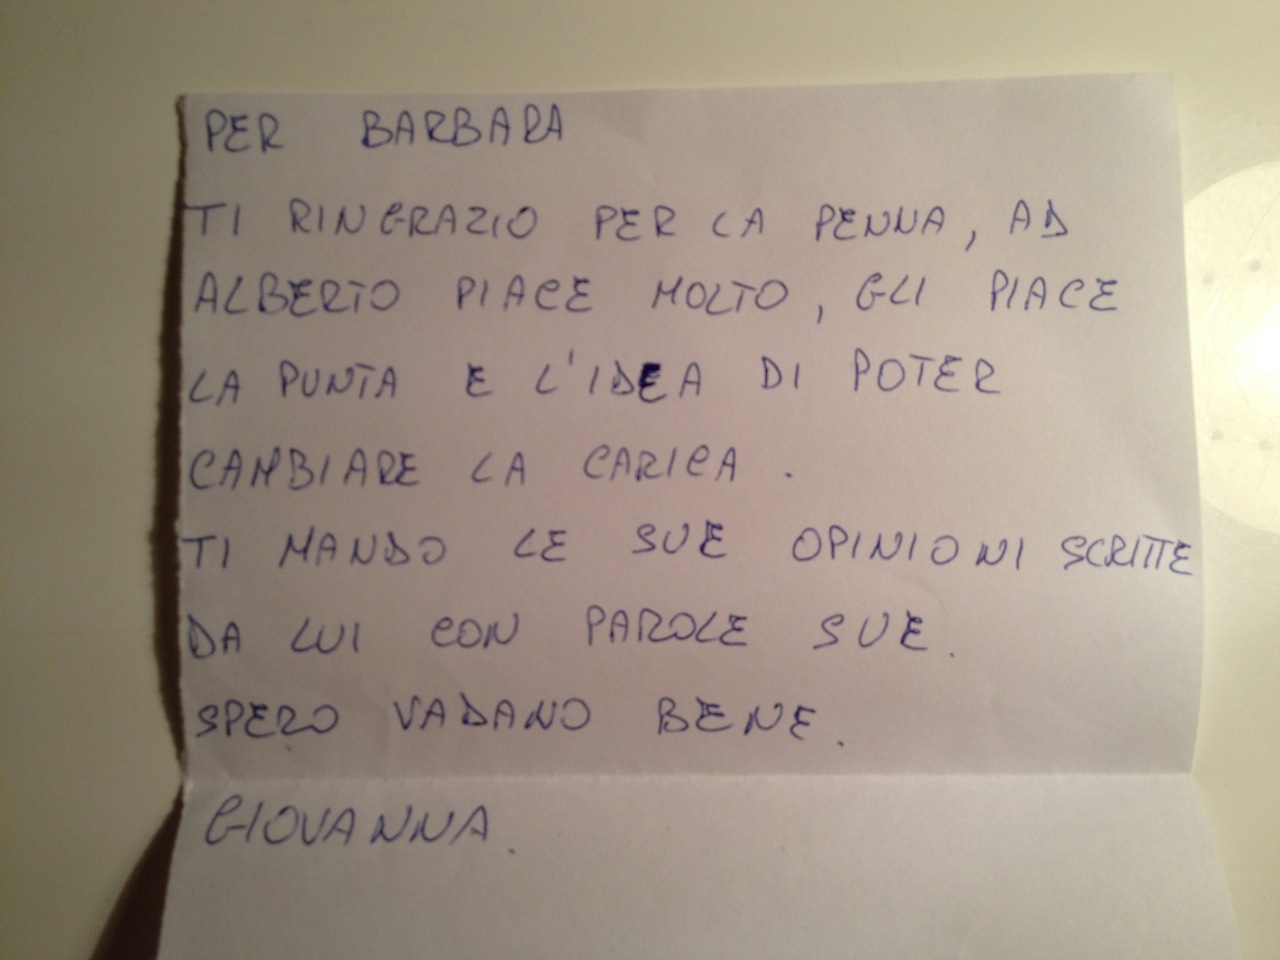 PER BARBARA
TI RINGRAZIO PER LA PENNA, AD
ALBERTO PIACE MOLTO, GLI PIACE
LA PUNTA E L'IDEA DI POTER
CAMBIARE LA CARICA.
TI MANDO LE SUE OPINIONI SCRITTE
DA LUI CON PAROLE SUE.
SPERO VADANO BENE.
GIOVANNA.